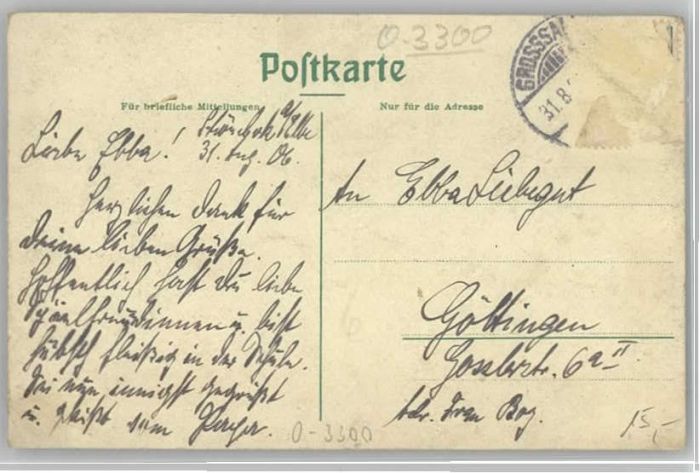 O-3300
Postkarte
Für briefliche Mitteilungen
Nur für die Adresse
GROSSSA
31.8.
a/Elbe
31. Aug. 06.
Liebe Ebba!
Herzlichen Dank für
Deine lieben Grüße.
Hoffentlich hast Du liebe
Spielfreundinnen u. bist
hübsch fleißig in der Schule.
Sei nun innigst gegrüßt
u. geküßt vom Papa.
An Ebba Liebegut
Göttingen
Gosslerstr. 6a II.
bei Frau
O-3300
15,-